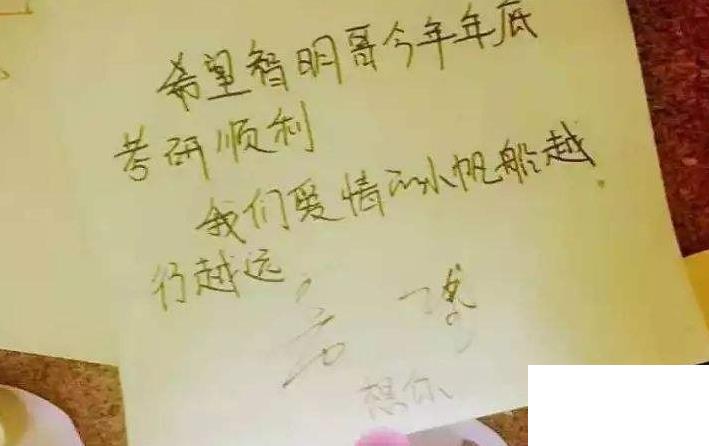 希望智明哥今年年底
考研顺利
我们爱情的小帆船越
行越远.
想你